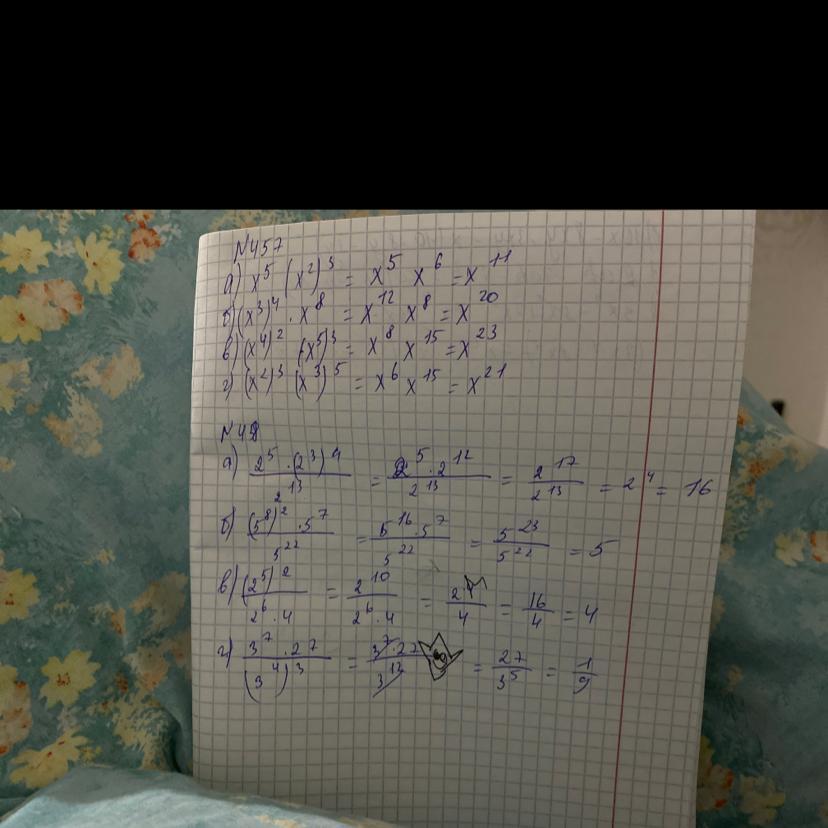 N457
а) x⁵ (x²)³ = x⁵ x⁶ = x¹¹
б) (x³)⁴ · x⁸ = x¹² x⁸ = x²⁰
в) (x⁴)² (x⁵)³ = x⁸ x¹⁵ = x²³
г) (x²)³ (x³)⁵ = x⁶ x¹⁵ = x²¹
N48
а) 2⁵ · (2³)⁴ / 2¹³ = 2⁵ · 2¹² / 2¹³ = 2¹⁷ / 2¹³ = 2⁴ = 16
б) (5⁸)² · 5⁷ / 5²² = 5¹⁶ · 5⁷ / 5²² = 5²³ / 5²² = 5
в) (2⁵)² / 2⁶ · 4 = 2¹⁰ / 2⁶ · 4 = 2⁴ / 4 = 16 / 4 = 4
г) 3⁷ · 27 / (3⁴)³ = 3⁷ · 27 / 3¹² = 27 / 3⁵ = 1 / 9